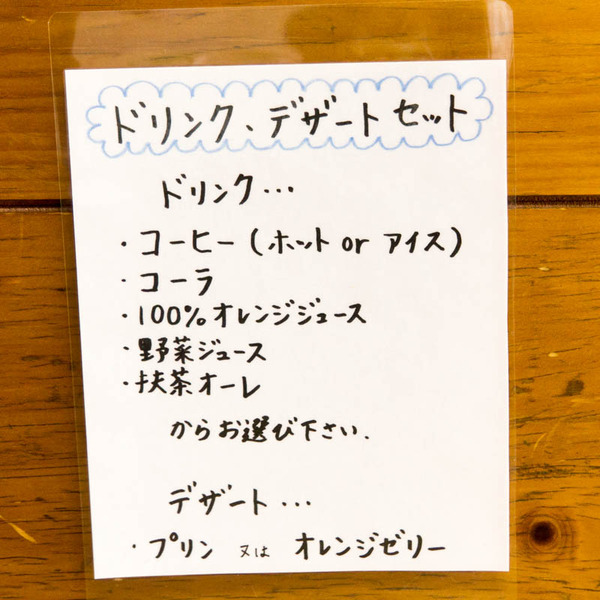 ドリンク、デザートセット
ドリンク…
・コーヒー(ホット or アイス)
・コーラ
・100%オレンジジュース
・野菜ジュース
・抹茶オーレ
からお選び下さい.
デザート…
・プリン 又は オレンジゼリー